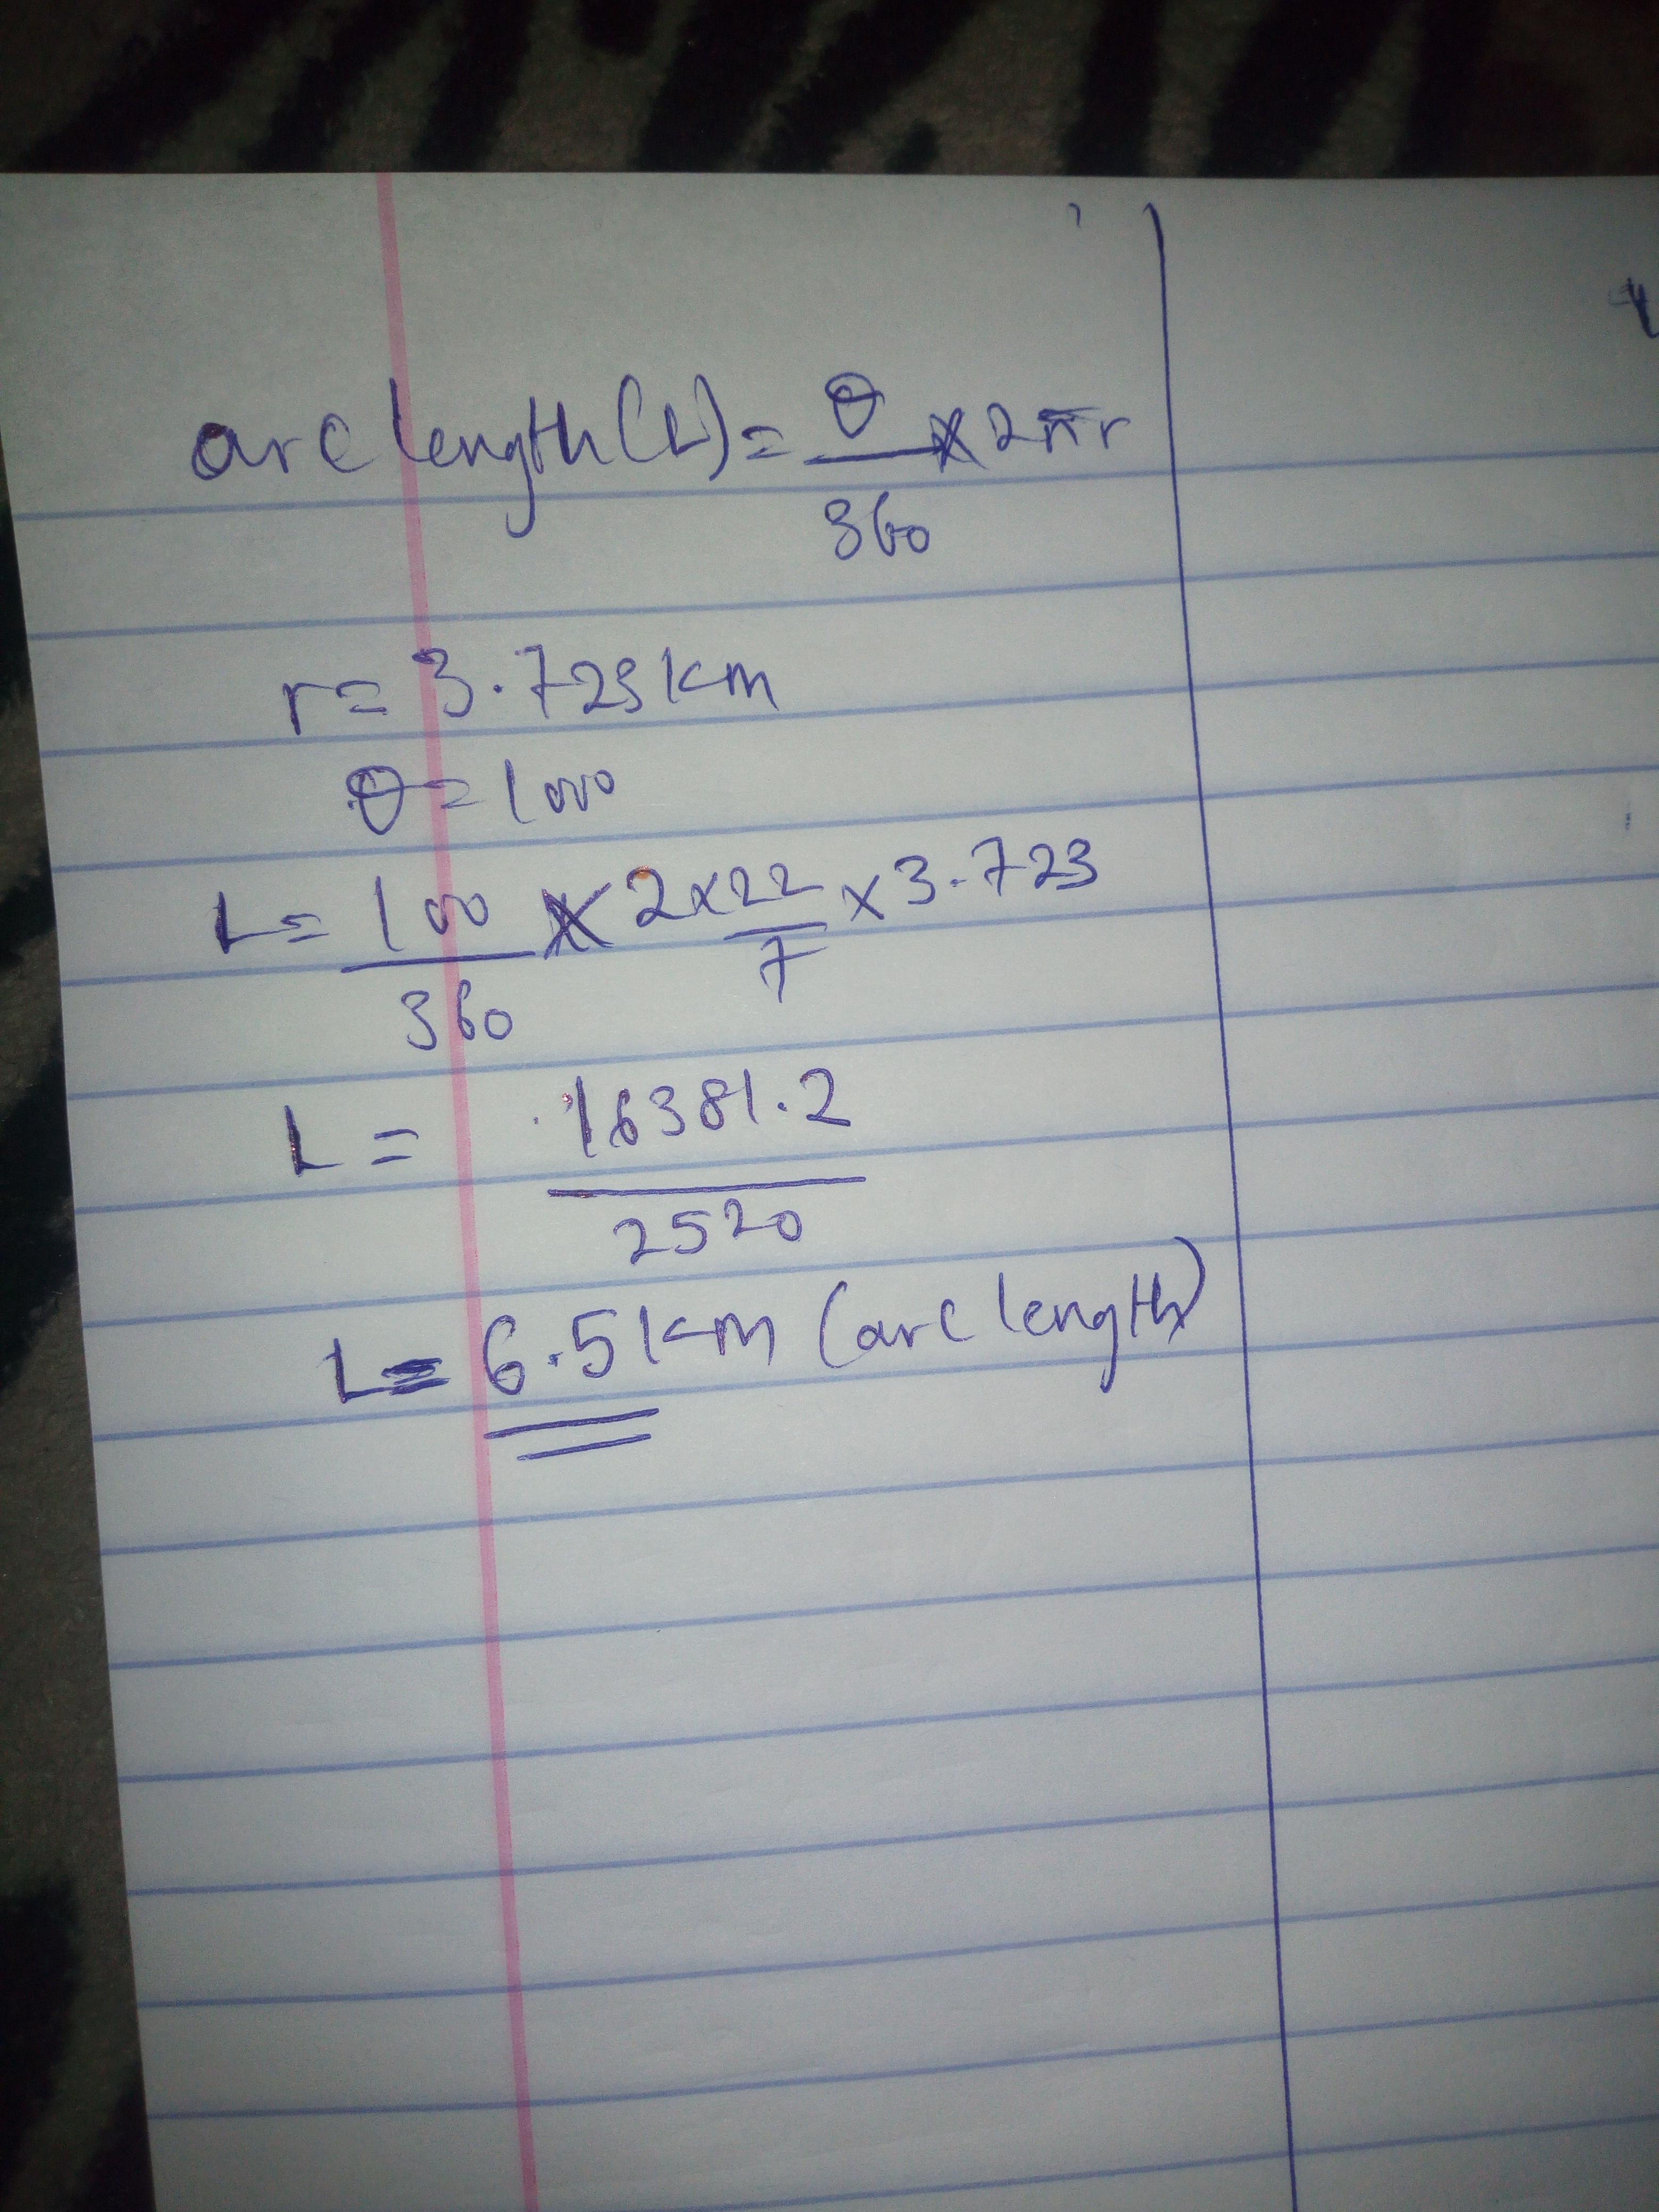 arc length (L) = θ/360 × 2πr
r = 3.723 km
θ = 100°
L = 100/360 × 2 × 22/7 × 3.723
L = 16381.2/2520
L = 6.5 km (arc length)